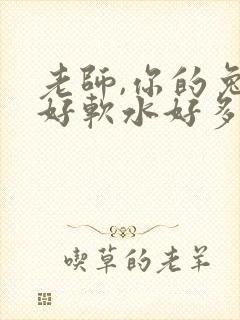 老師,你的兔
好軟水好多
喫草的老羊